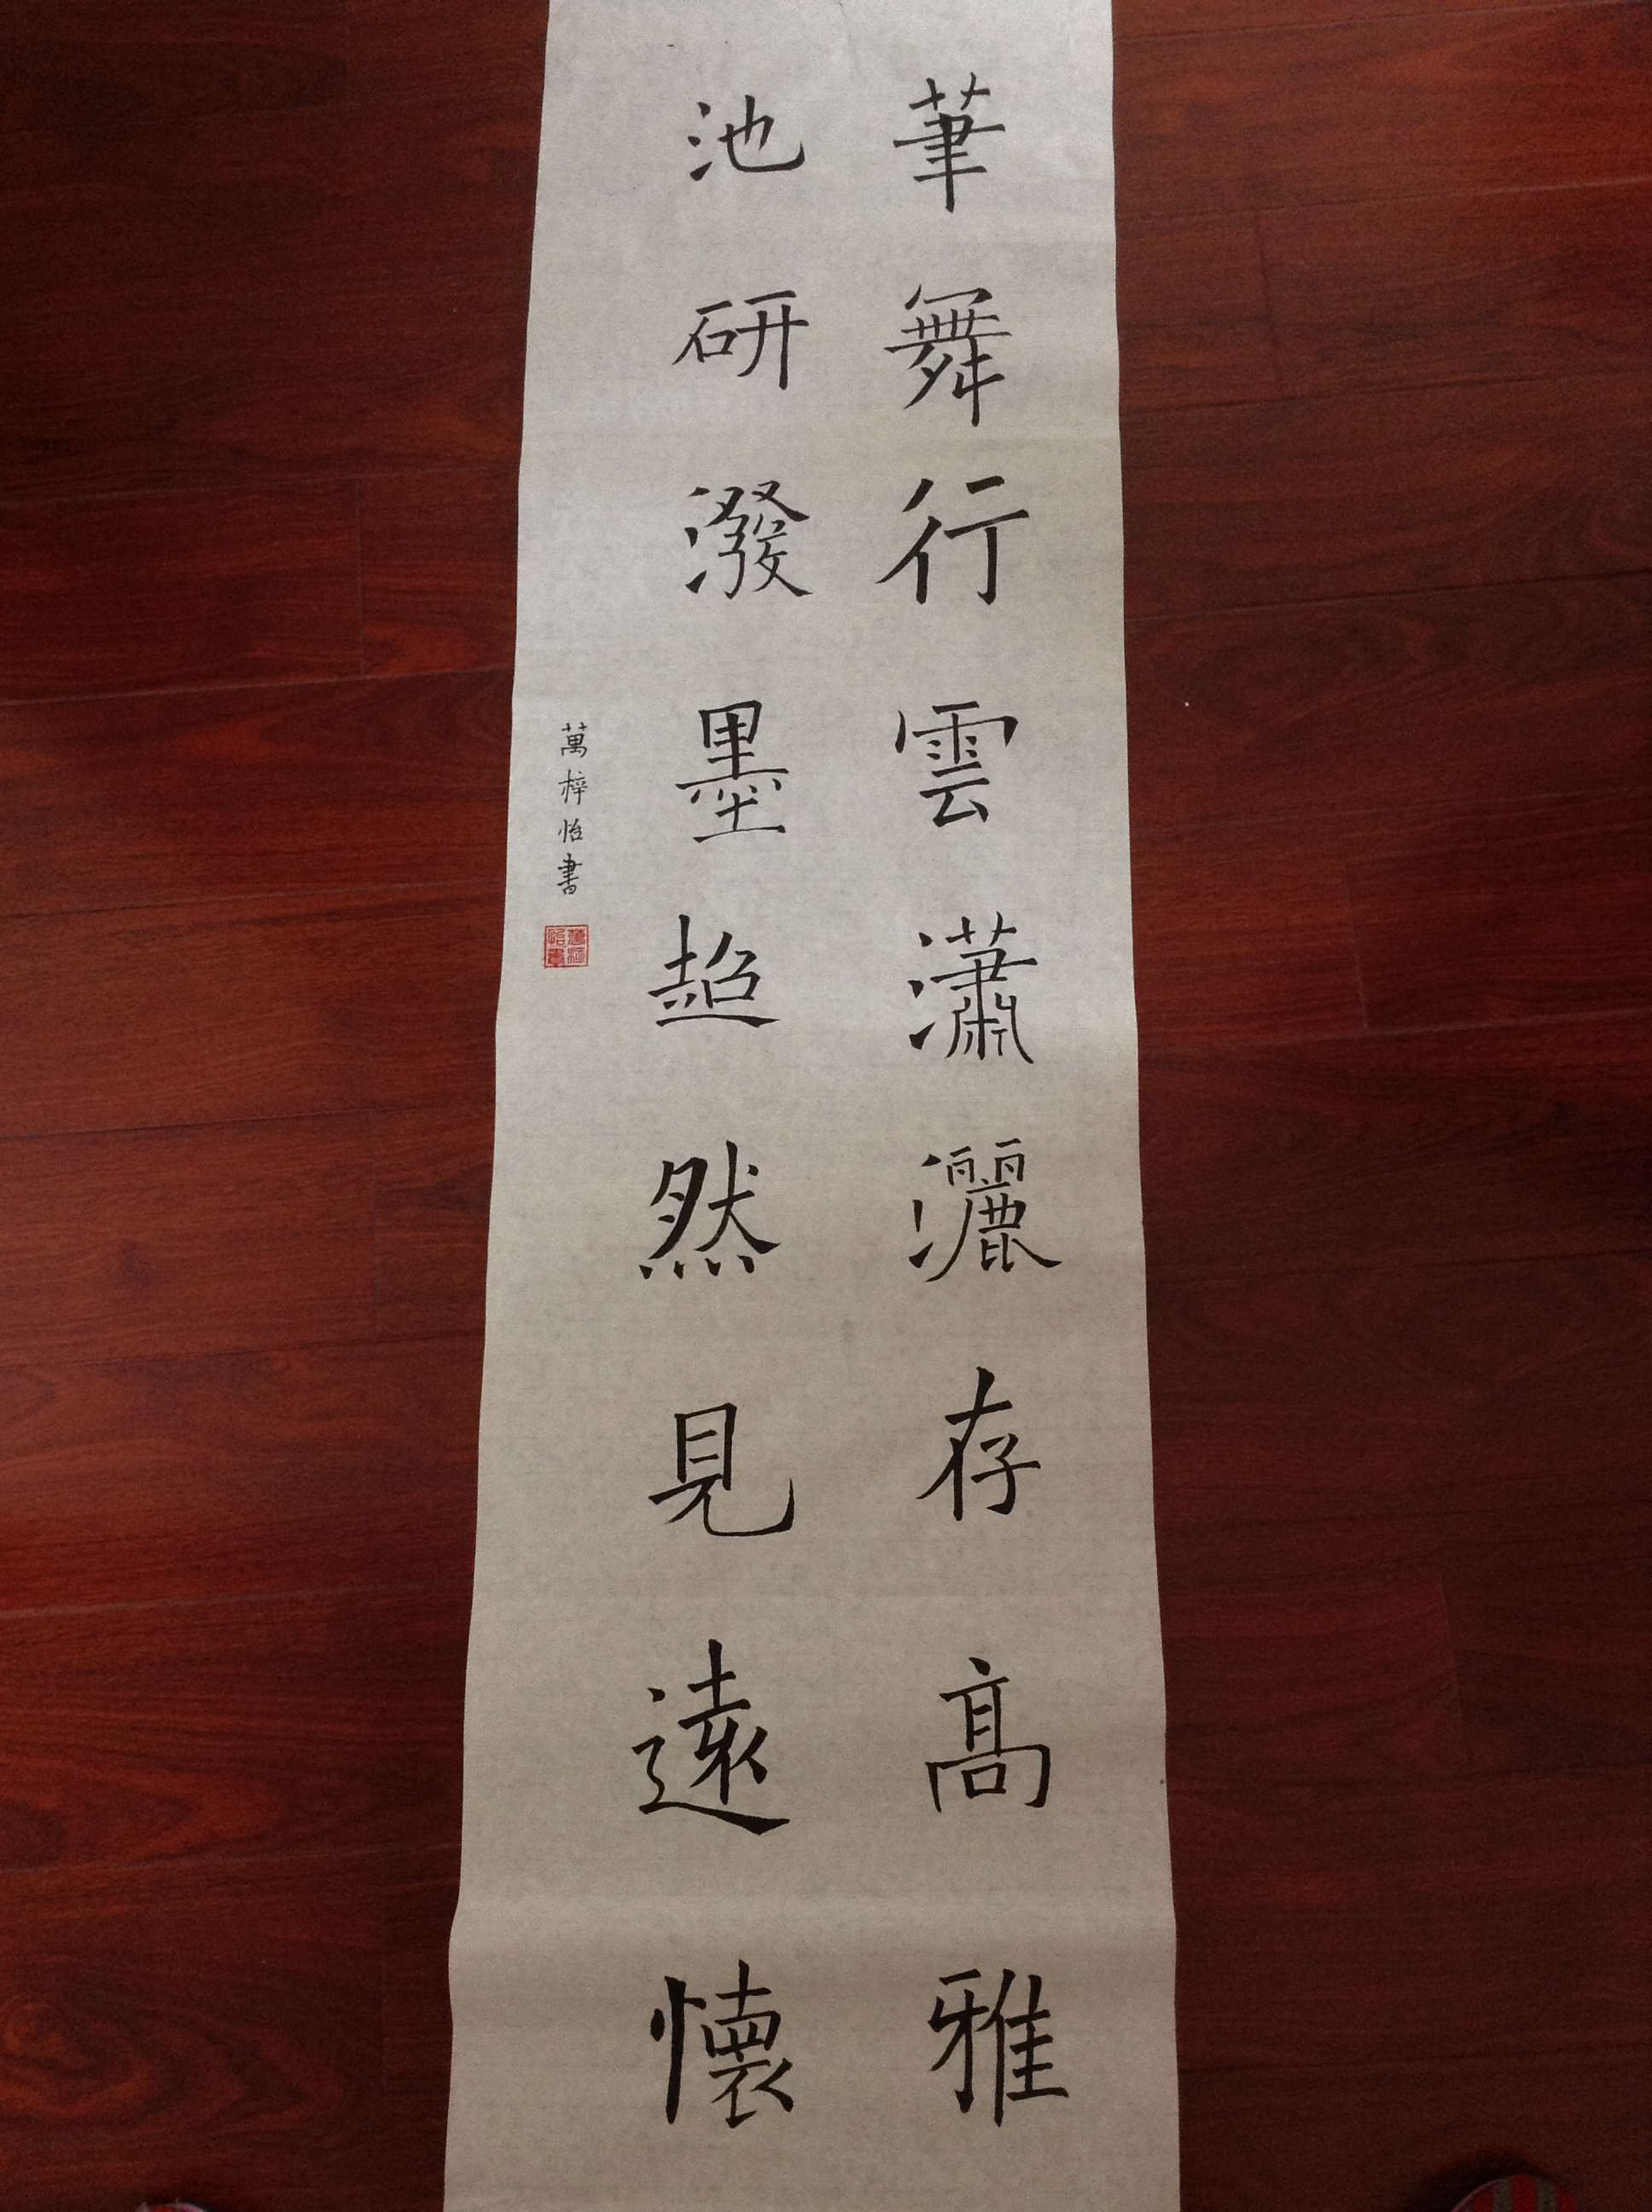 筆舞行雲瀟灑存高雅
池研潑墨超然見遠懷
萬梓怡書